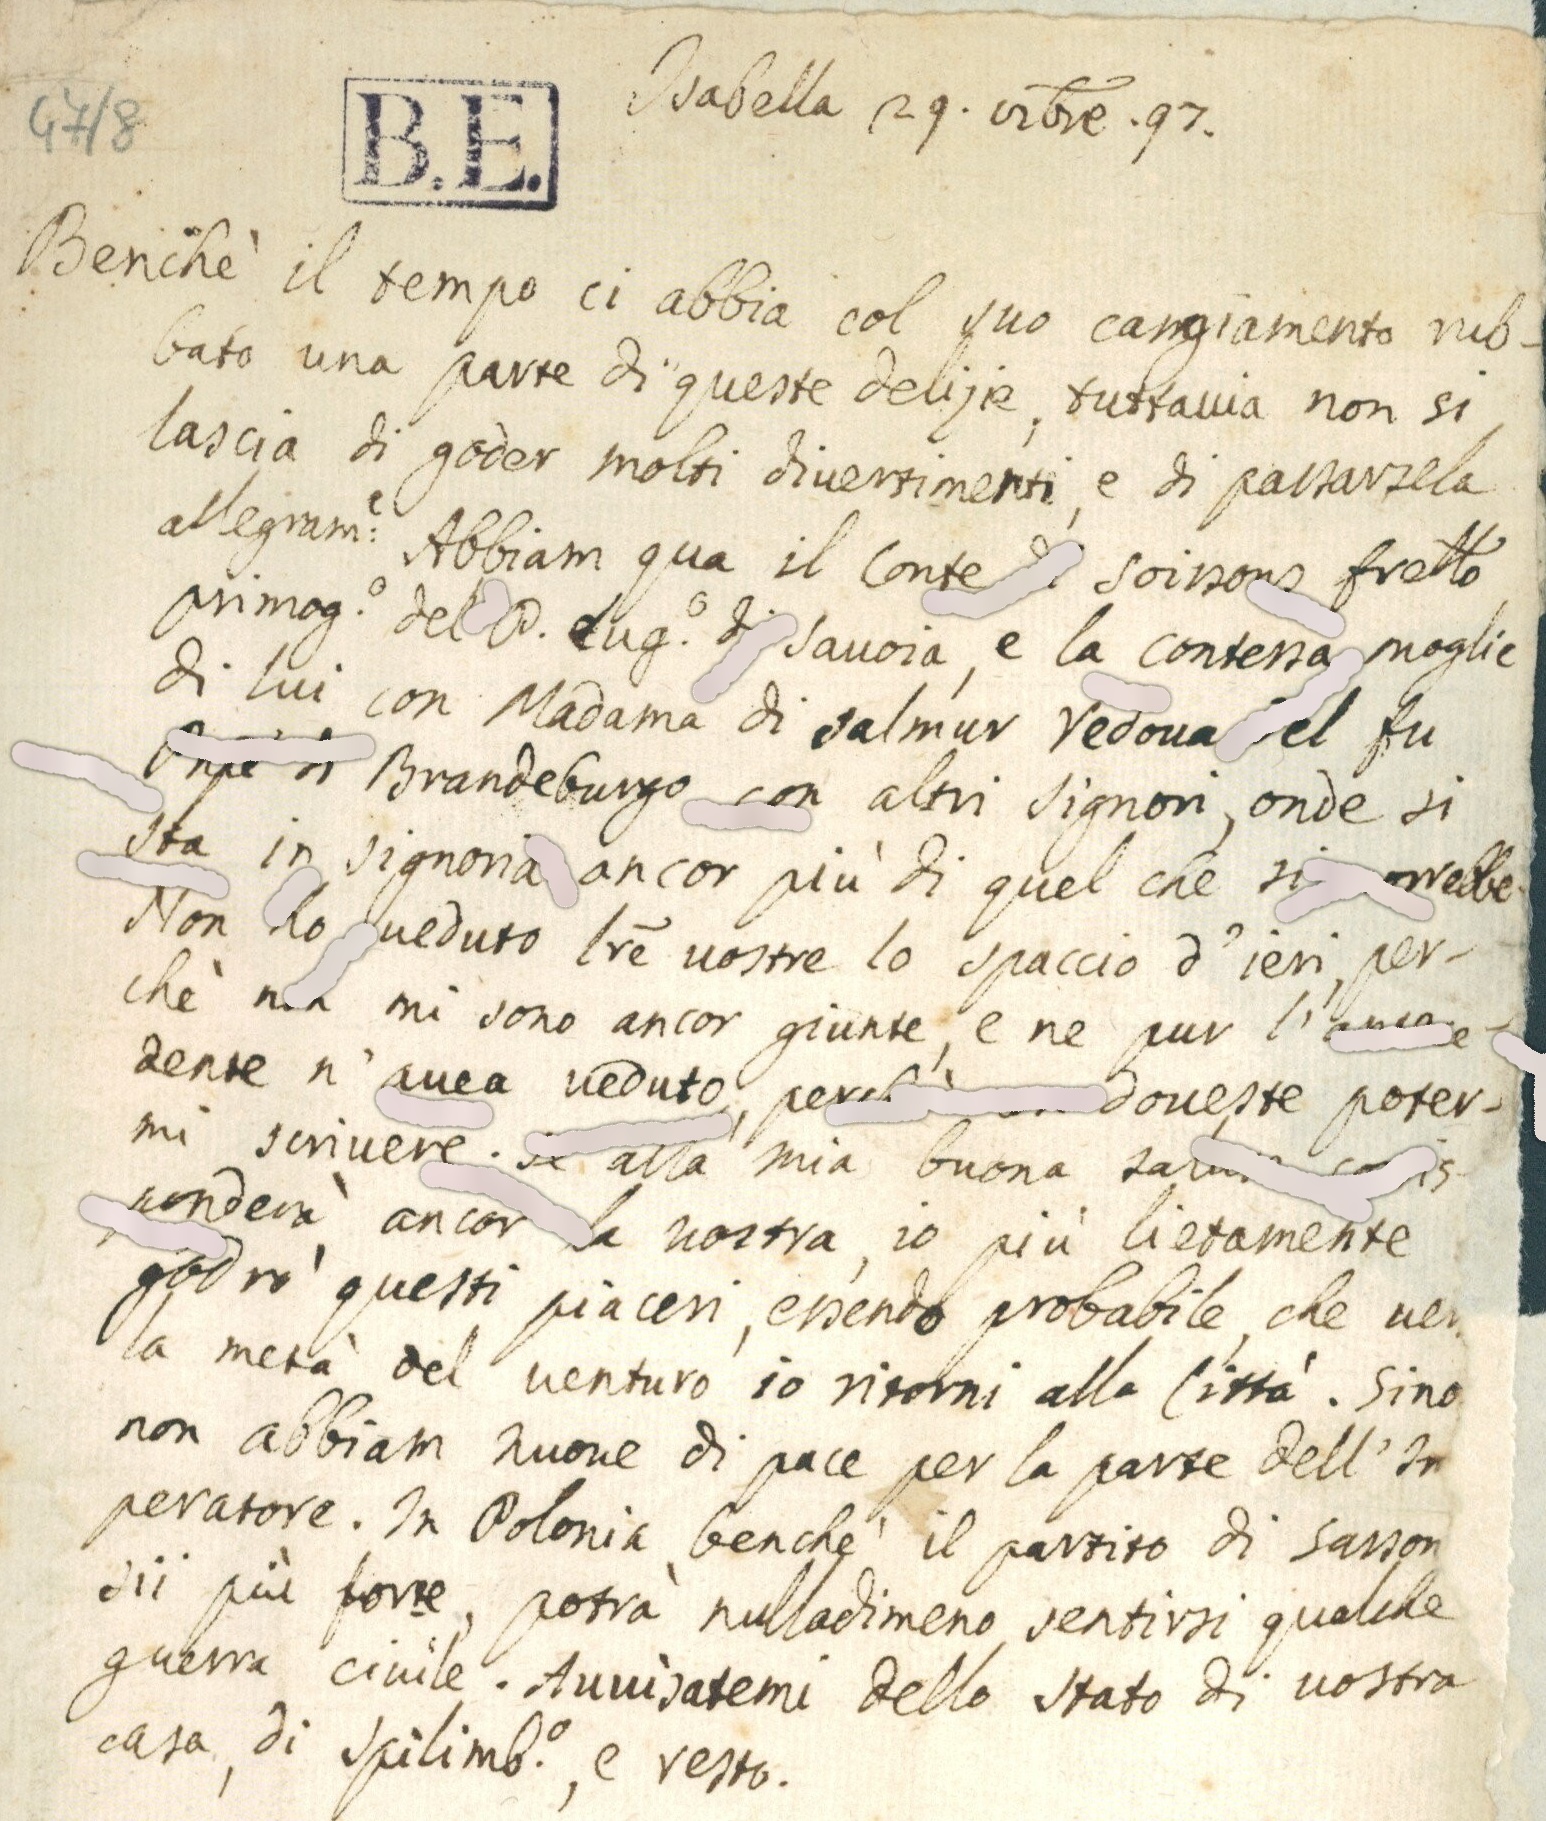 47/8
B.E.
Isabella 29. 8tbre. 97.
Benchè il tempo ci abbia col suo cangiamento rub-
bato una parte di queste delizie, tuttauia non si
lascia di goder molti diuertimenti, e di passarsela
allegram.e Abbiam qua il Conte di Soissons frello
primog.o del P. Eug.o di Sauoia, e la Contessa moglie
di lui con Madama di Salmur Vedoua del fu
Brandeburgo con altri Signori, onde si
sta in signoria ancor più di quel che si
Non ho ueduto lre uostre lo spaccio d'ieri, per-
chè non mi sono ancor giunte, e ne pur l'
dente n'auea ueduto, perchè doueste poter-
mi scriuere. Se alla mia buona
ponderà ancor la uostra, io più lietamente
godrò questi piaceri, essendo probabile, che uer
la metà del uenturo io ritorni alla Città. Sino
non abbiam nuoue di pace per la parte dell'Im
peratore. In Polonia benchè il partito di Sasson
sii più forte, potrà nulladimeno sentirsi qualche
guerra ciuile. Auuisatemi dello stato di uostra
casa, di Spilimb.o, e resto.